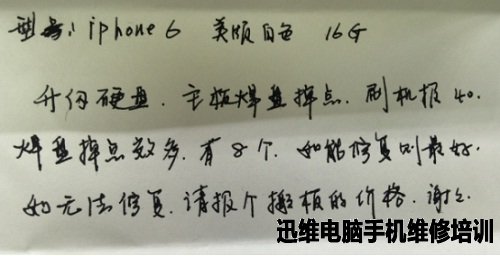 型号: iphone 6 美版白色 16G
升级硬盘. 主板焊盘掉点. 刷机报 40.
焊盘掉点较多. 有 8 个. 如能修复则最好.
如无法修复. 请报个搬板的价格. 谢谢.
迅维电脑手机维修培训